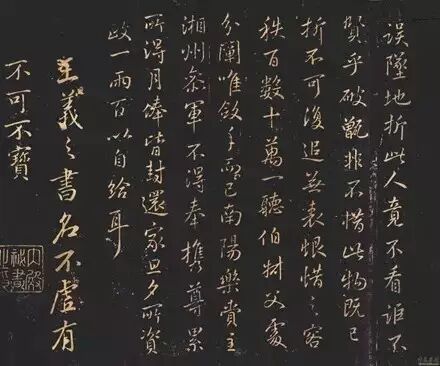 誤墜地折此人竟不看詎不
賢乎破甑非不惜此物既已
折不可復追無恨惜之容
秩百數十萬一聽伯樹父處
分唯斂手而已南陽樂賞主
湘州叅軍不得奉攜尊累
所得月俸皆封還家旦夕所資
政一兩百以自給耳
王羲之書名不虛有
不可不寶
內殿秘書之印